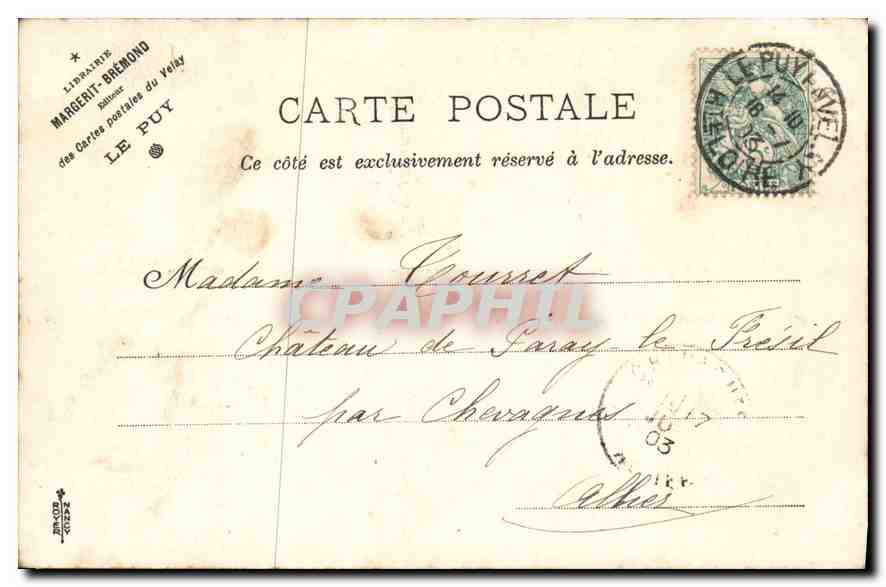 LIBRAIRIE
MARGERIT-BRÉMOND
Editeur
des Cartes postales du Velay
LE PUY
CARTE POSTALE
Ce côté est exclusivement réservé à l'adresse.
LE PUY EN VELAY
14 10
16 -7
HTE LOIRE
Madame Tourret
CPAPHIL
Château de Paray-le-Frésil
par Chevagnes
03
Allier
NANCY
ROYER